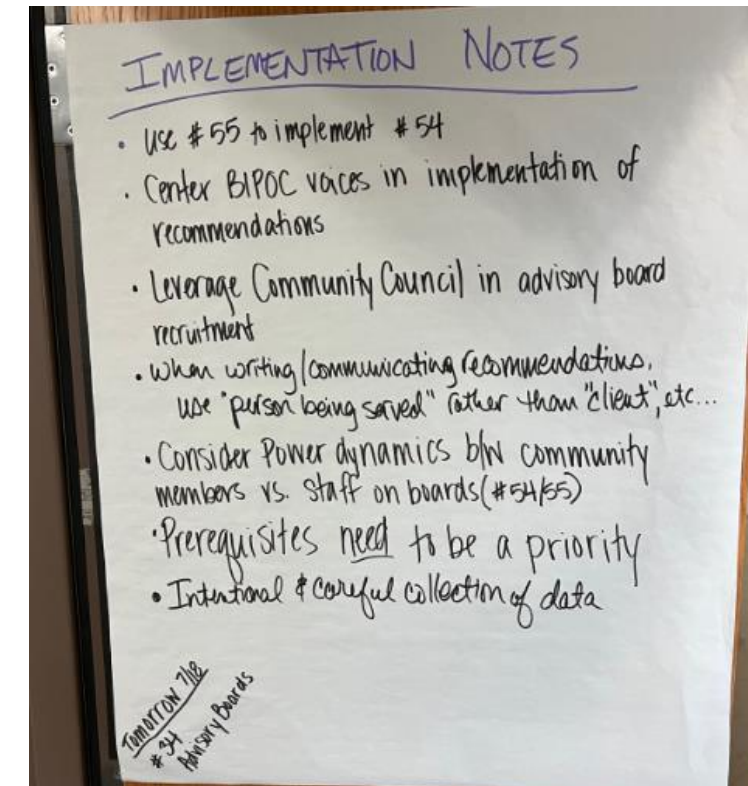 IMPLEMENTATION NOTES
• Use #55 to implement #54
• Center BIPOC voices in implementation of
recommendations
• Leverage Community Council in advisory board
recruitment
• When writing/communicating recommendations,
use "person being served" rather than "client", etc...
• Consider Power dynamics b/w community
members vs. Staff on boards (#54/55)
• Prerequisites need to be a priority
• Intentional & careful collection of data
Tomorrow 7/18
#34
Advisory Boards